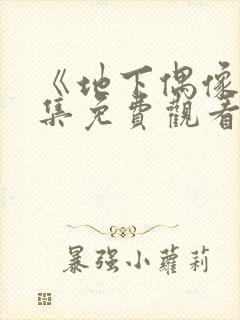 《地下偶像
集免費觀看
暴强小蘿莉